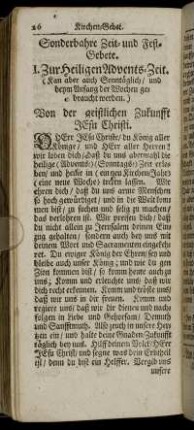 26 Kirchen-Gebet.
Sonderbahre Zeit- und Fest-
Gebete.
I. Zur Heiligen Advents-Zeit.
(Kan aber auch Sonntäglich/ und
beym Anfang der Wochen ge-
braucht werden.)
Von der geistlichen Zukunfft
JEsu Christi.
O HErr JEsu Christe/ du König aller
Könige/ und HErr aller Herren!
wir loben dich/ daß du uns abermahl die
heilige (Advents-) (Sonntags-) Zeit erle-
ben/ und heute in (einges Kirchen Jahr)
(eine neue Woche) treten lassen. Wir
ehren dich/ daß du uns arme Menschen
so hoch gewürdiget/ und in die Welt kom-
men bist/ zu suchen und selig zu machen/
das verlohren ist. Wir preisen dich/ daß
du nicht allein zu Jerusalem deinen Ein-
zug gehalten/ sondern auch bey uns mit
deinem Wort und Sacramenten eingekeh-
ret. Du ewiger König der Ehren sey und
bleibe auch unser König; und wie du gen
Zion kommen bist/ so komm heute auch zu
uns; Komm und erleuchte uns/ daß wir
dich recht erkennen. Komm und tröste uns/
daß wir uns in dir freuen. Komm und
regiere uns/ daß wir die dienen und nach-
folgen in Liebe und Gehorsam/ Demuth
und Sanfftmuth. Also zeuch in unsere Her-
tzen ein/ und halte deine Gnaden-Zukunfft
täglich bey uns. Hilff deinem Volck/ HErr
JEsu Christ/ und segne was dein Erbtheil
ist/ denn du bist ein Helffer. Vergib uns
unsere